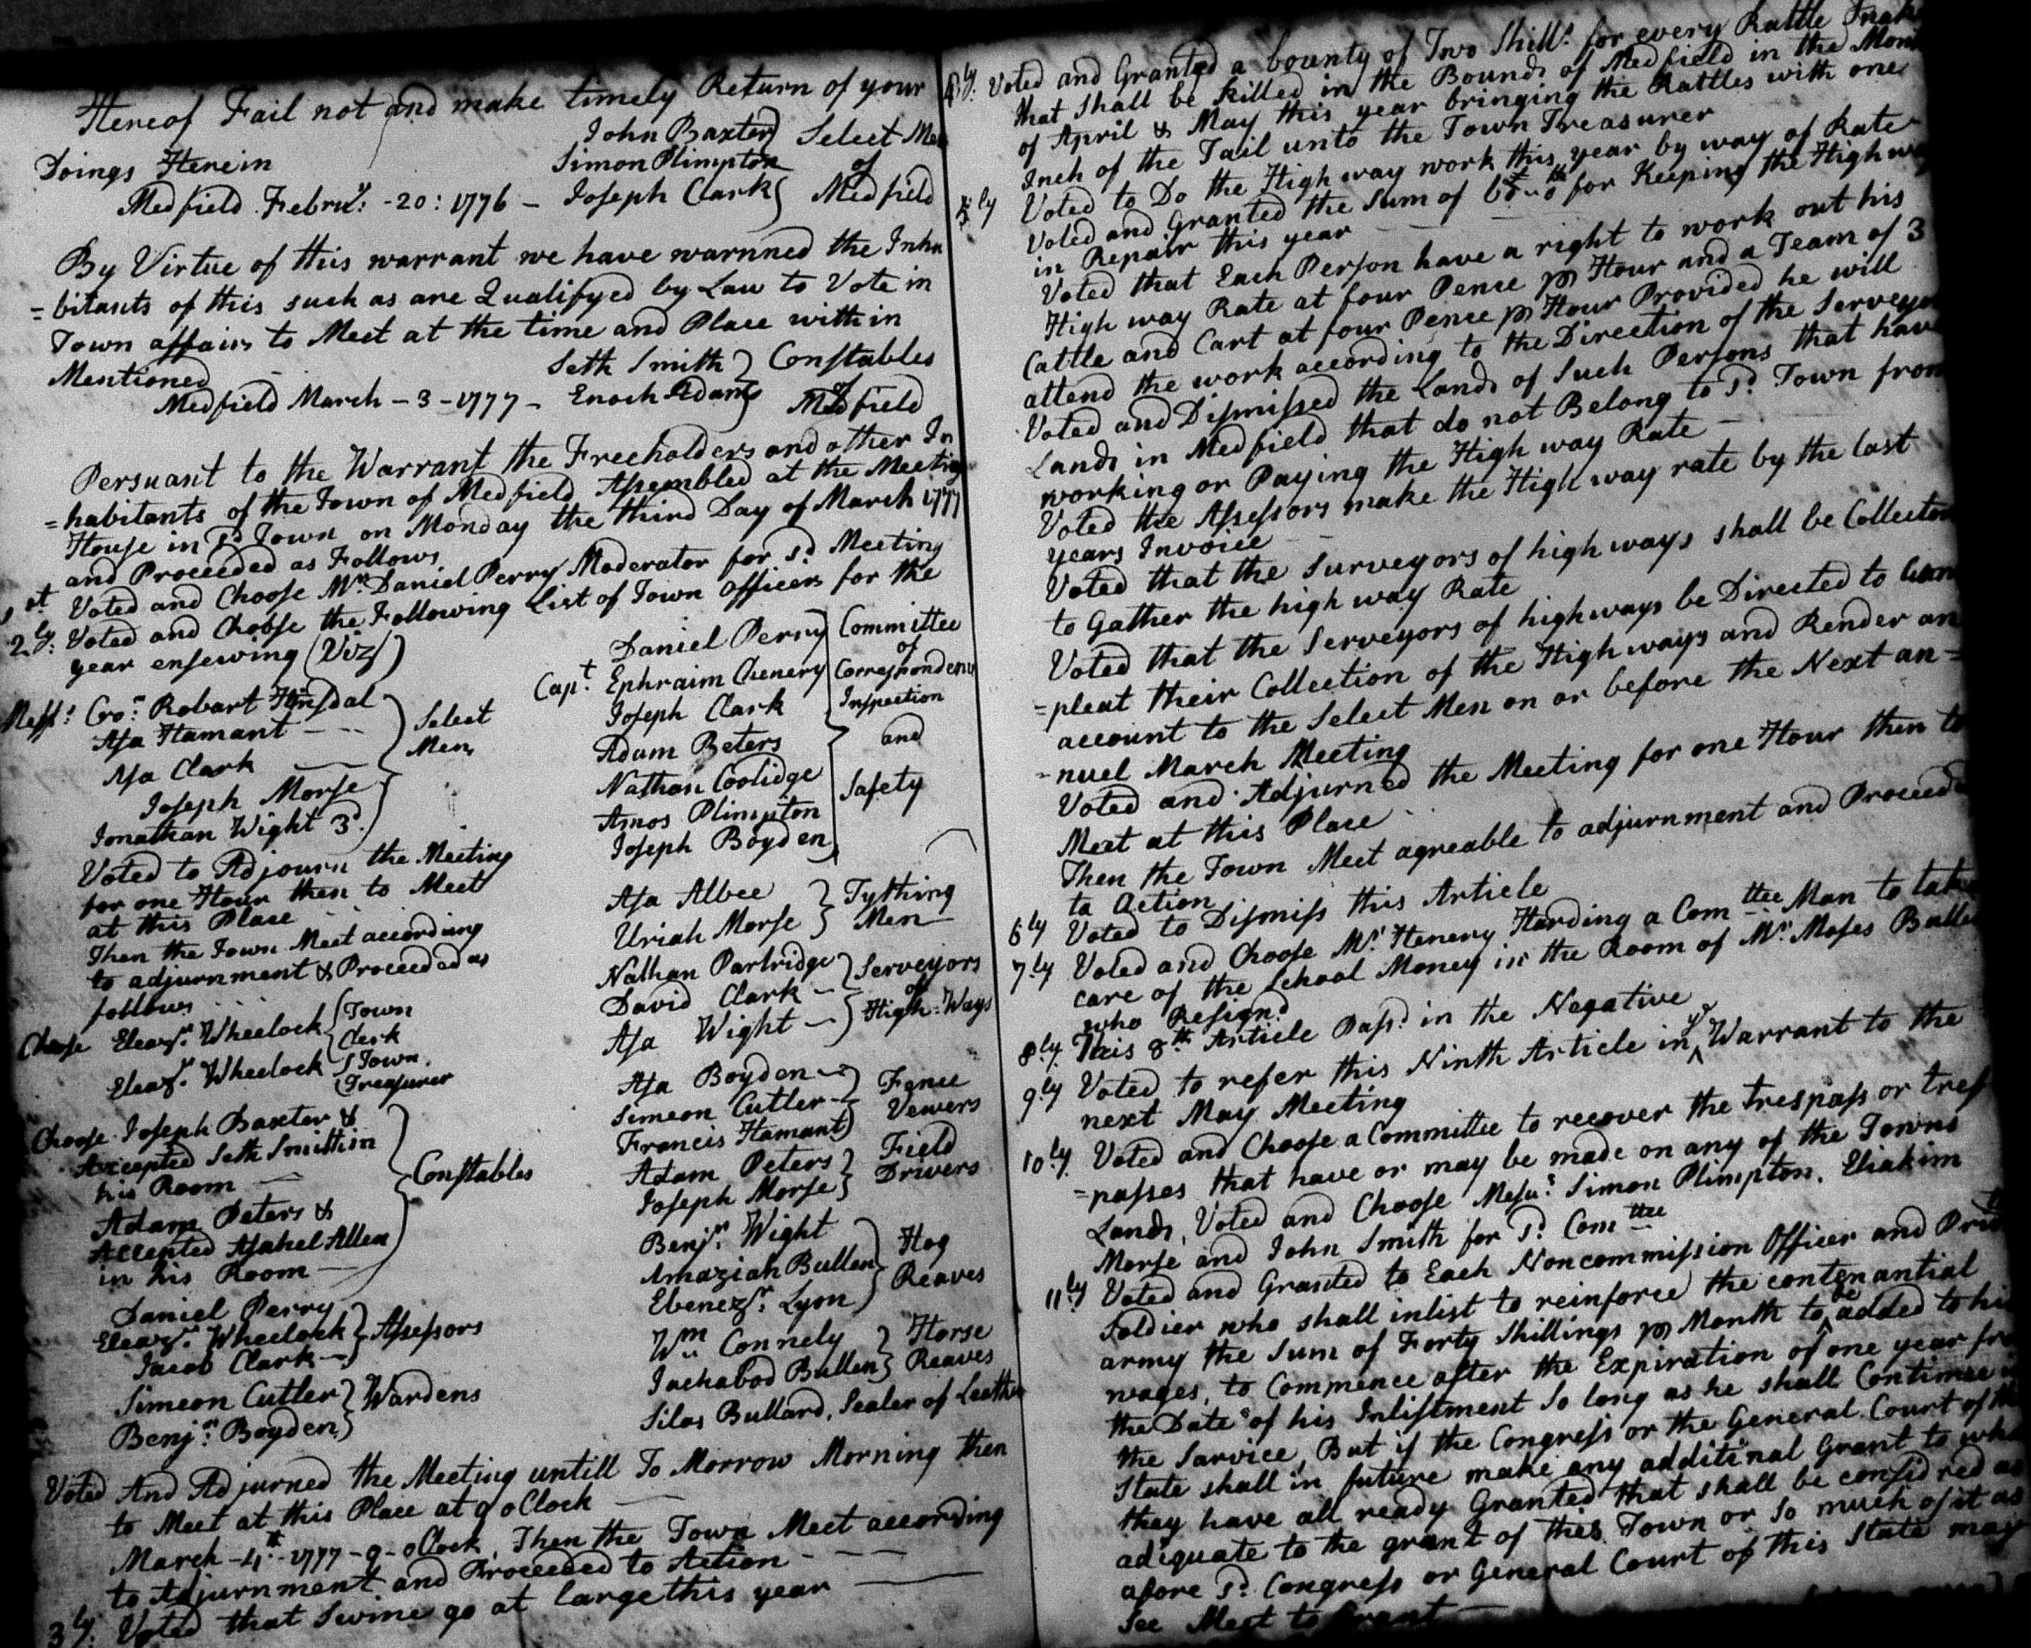 Hereof Fail not and make timely Return of your
Doings Herein
John Baxter
Simon Plimpton
Joseph Clark
Select Men
of
Medfield
Medfield Febru.y: - 20: 1776 -
By Virtue of this warrant we have warnned the Inha
=bitants of this such as are Qualifyed by Law to Vote in
Town affairs to Meet at the time and Place within
Mentioned
Seth Smith
Enoch Adams
Constables
of
Medfield
Medfield March - 3 - 1777 -
Persuant to the Warrant the Freeholders and other In
=habitants of the Town of Medfield Assembled at the Meeting
House in sd Town on Monday the third Day of March 1777
and Proceeded as Follows
1st Voted and Choose Mr. Daniel Perry Moderator for sd Meeting
2ly: Voted and Choose the Following List of Town officers for the
year ensewing (Viz)
Messrs: Robart Hinsdal
Asa Hamant
Asa Clark
Joseph Morse
Jonathan Wight 3d.
Select
Men
Voted to Adjourn the Meeting
for one Hour then to Meet
at this Place
Then the Town Meet according
to adjurnment & Proceeded as
follows
Choose Eleazr. Wheelock Town
Clerk
Eleazr. Wheelock Town
Treasurer
Choose Joseph Baxter &
Accepted Seth Smith in
his Room
Adam Peters &
Accepted Asahel Allen
in his Room
Constables
Daniel Perry
Eleazr. Wheelock
Jacob Clark
Assessors
Simeon Cutler
Benjn: Boyden
Wardens
Daniel Perry
Capt. Ephraim Chenery
Joseph Clark
Adam Peters
Nathan Coolidge
Amos Plimpton
Joseph Boyden
Committee
of
Correspondence
Inspection
and
Safety
Asa Albee
Uriah Morse
Tything
Men
Nathan Partridge
David Clark
Asa Wight
Serveyors
of
High-Ways
Asa Boyden
Simeon Cutler
Francis Hamant
Fence
Vewers
Adam Peters
Joseph Morse
Field
Drivers
Benjn. Wight
Amaziah Bullen
Ebenezr. Lyon
Hog
Reaves
Wm Connely
Jachabod Bullen
Horse
Reaves
Silas Bullard, Sealer of Leather
Voted And Adjurned the Meeting untill To Morrow Morning then
to Meet at this Place at 9 oClock
March - 4th - 1777 - 9 - oClock, Then the Town Meet according
to Adjurnment and Proceeded to Action
3ly: Voted that Swine go at large this year
4ly. Voted and Granted a bounty of Two Shills. for every Rattle Snake
that shall be killed in the Bounds of Medfield in the Mon
of April & May this year bringing the Rattles with one
Inch of the Tail unto the Town Treasurer
5ly Voted to Do the High way work this year by way of Rate
Voted and Granted the Sum of for Keeping the High way
in Repair this year
Voted that Each Person have a right to work out his
High way Rate at four Pence pr Hour and a Team of 3
Cattle and Cart at four Pence pr Hour Provided he will
attend the work according to the Direction of the Serveyor
Voted and Dismissed the Lands of Such Persons that have
Lands in Medfield that do not Belong to sd. Town from
working or Paying the High way Rate
Voted the Assessors make the High way rate by the last
years Invoice
Voted that the Surveyors of high ways shall be Collectors
to Gather the high way Rate
Voted that the Serveyors of highways be Directed to Com
=pleat their Collection of the High ways and Render an
account to the Select Men on or before the Next an=
-nuel March Meeting
Voted and Adjurned the Meeting for one Hour then to
Meet at this Place
Then the Town Meet agreable to adjurnment and Proceeded
to Action
6ly Voted to Dismiss this Article
7ly Voted and Choose Mr. Henery Harding a Com ttee Man to take
care of the School Money in the Room of Mr. Moses Bullen
who Resignd
8ly. This 8th Article Passd. in the Negative
9ly Voted to refer this Ninth Article in ye Warrant to the
next May Meeting
10ly. Voted and Choose a Committee to recover the trespass or tres
=passes that have or may be made on any of the Towns
Lands, Voted and Choose Messrs: Simon Plimpton, Eliakim
Morse and John Smith for sd. Com ttee
11ly Voted and Granted to Each Noncommission Officer and Priv
Soldier who shall inlist to reinforce the contenantial
army the Sum of Forty Shillings pr Month to be added to his
wages, to Commence after the Expiration of one year from
the Date of his Inlistment So long as he shall Continue in
the Sarvice, But if the Congress or the General Court of the
State shall in future make any additinal Grant to what
they have all ready Granted that shall be considred as
adiquate to the grant of this Town or So much of it as
afore sd. Congress or General Court of this State may
See Meet to Grant